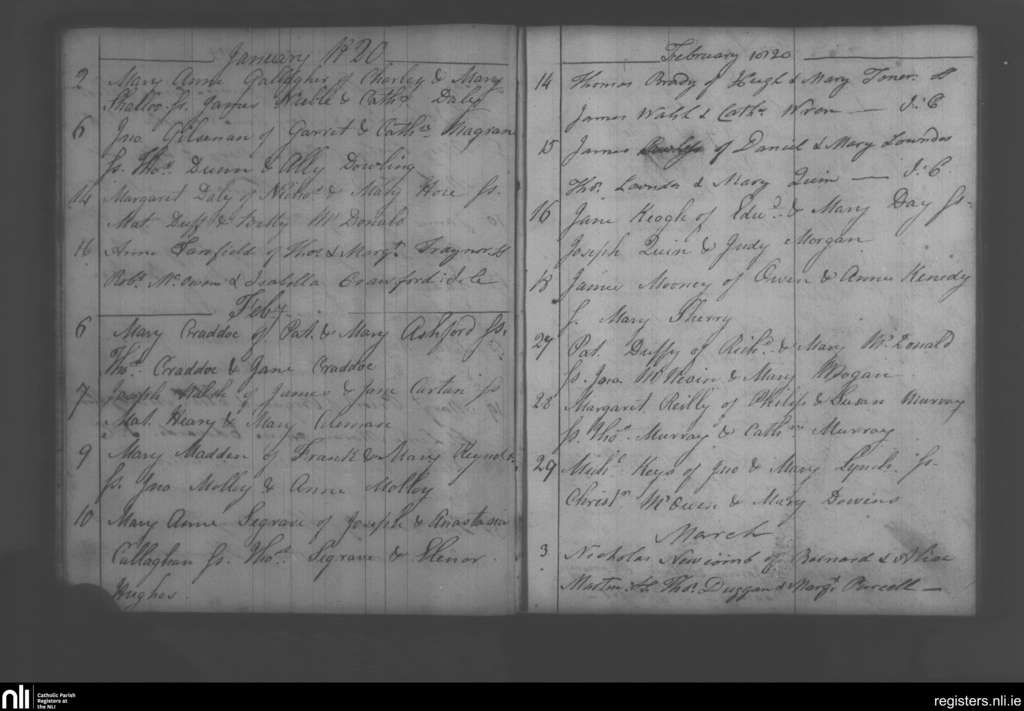 January 1820
2 Mary Anne Gallagher of Charley & Mary
Shalloo Ss. James Neeble & Cathe Daly
6 Jno Gilsenan of Garret & Cathe Magran
Ss. Thos. Dunn & Ally Dowling
14 Margaret Daly of Nichos & Mary Hore Ss.
Mat. Duff & Betty McDonald
16 Anne Farafield of Thos & Margt. Traynor Ss
Robt. McOwen & Isabella Crawford
Feby
6 Mary Craddoc of Pat. & Mary Ashford Ss.
Thos. Craddoc & Jane Craddoc
7 Joseph Walsh of James & Jane Curtan Ss
Mat. Heany & Mary
9 Mary Madden of Frank & Mary
Ss. Jno Molloy & Anne Molloy
10 Mary Anne Segrave of Joseph & Anastasia
Callaghan Ss. Thos. Segrave & Elenor
Hughes.
February 1820
14 Thomas Brady of Hugh & Mary Toner Ss
James Walsh & Cathe Wren — J:C
15 James of Daniel & Mary Lowndes
Thos. Lowndes & Mary Quin — J:C.
16 Jane Keogh of Edwd. & Mary Day Ss.
Joseph Quin & Judy Morgan
18 James Mooney of Owen & Anne Kenedy
S. Mary Sherry
27 Pat. Duffy of Richd. & Mary McDonald
Ss. Jno. McNevin & Mary Wogan
28 Margaret Reilly of Philip & Susan Murray
Ss. Thos. Murray & Cathne Murray
29 Michl. Keys of Jno & Mary Lynch Ss.
Christr McOwen & Mary Dowens
March
3 Nicholas Newcomb of Barnard & Alice
Martin Ss Thos. Duggan & Margt. Purcell —
nli
Catholic Parish
Registers at
the NLI
registers.nli.ie